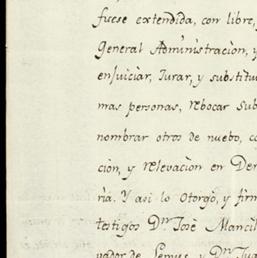 fuese extendida, con libre,
General Administracion, y
enjuiciar, Jurar, y substitui
mas personas, rebocar Sub
nombrar otros de nuebo, co
cion, y relevacion en Der
ria. Y asi lo Otorgó, y firm
testigos Dn. José Mancil
vador de Lemus, y Dn. Jua